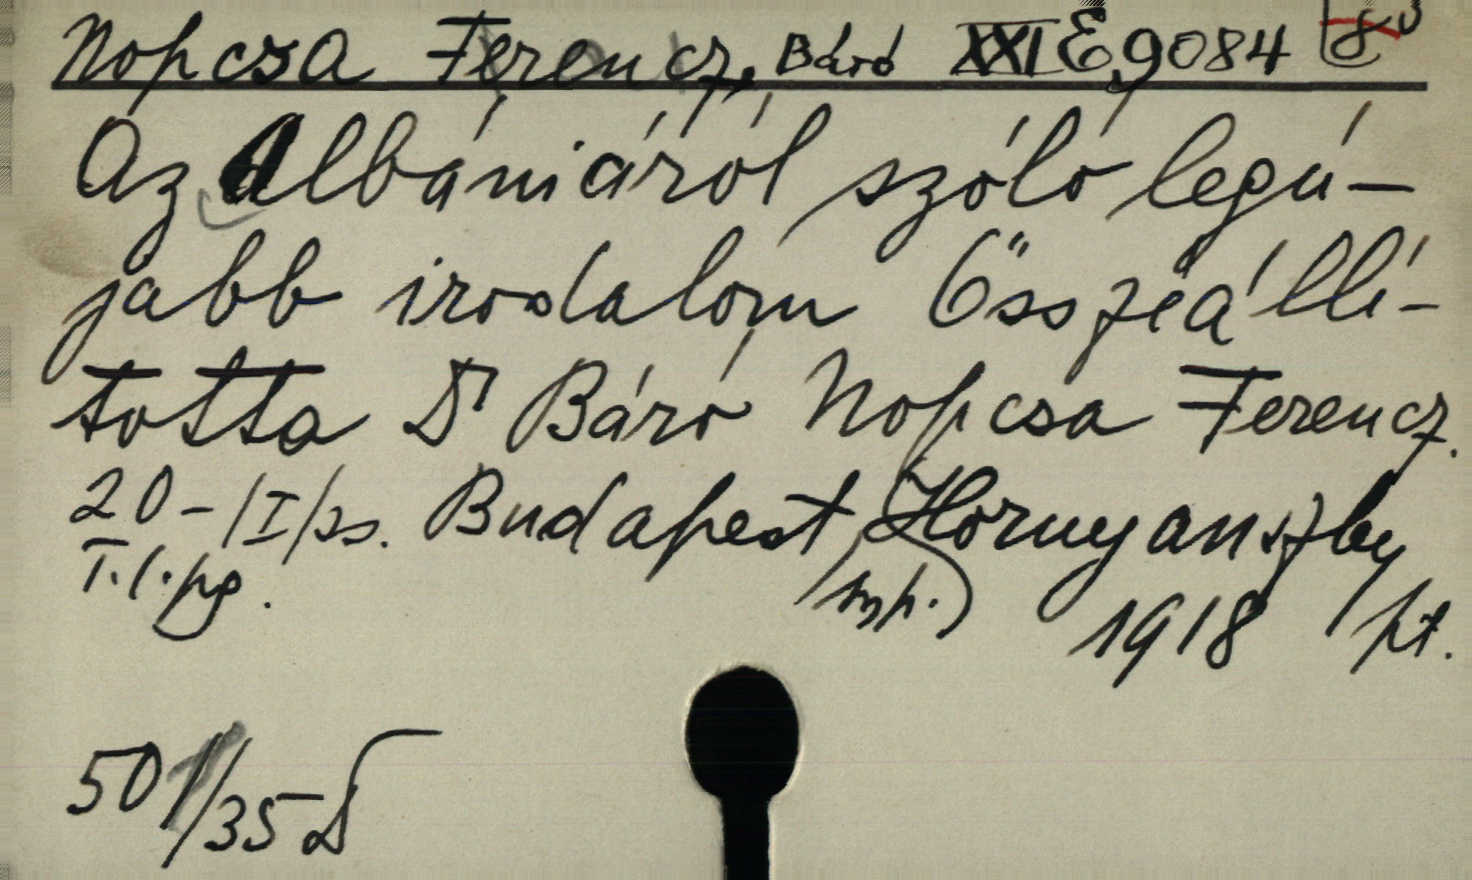 Nopcsa Ferencz, Báró XXI E, 9084 8°
Az Albániáról szóló legú-
jabb irodalom Összeállí-
totta Dr Báró Nopcsa Ferencz.
20-/I/ss. Budapest, Hornyanszky
T. l. pg. /mp.) 1918 pt.
501/35